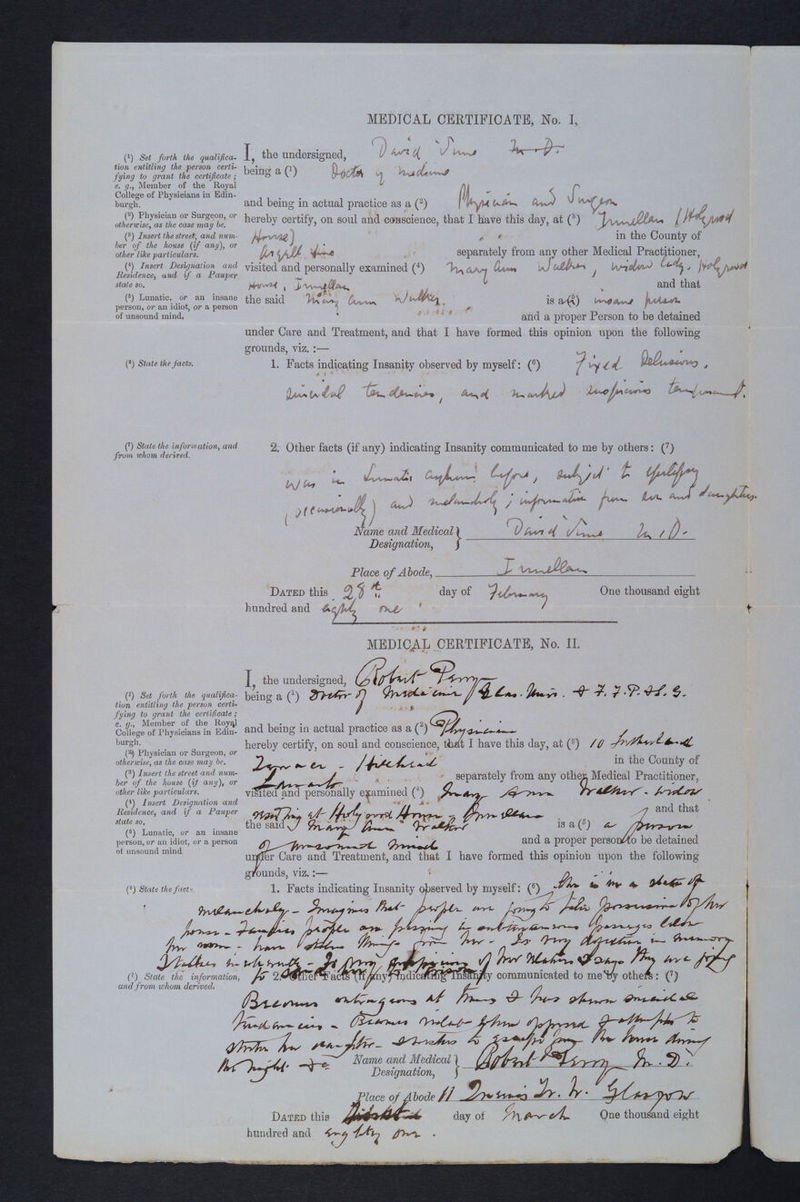 MEDICAL CERTIFICATE, No. I,
(1) Set forth the qualifica-
tion entitling the person certi-
fying to grant the certificate;
e. g., Member of the Royal
College of Physicians in Edin-
burgh.
(2) Physician or Surgeon, or
otherwise, as the case may be.
(3) Insert the street, and num-
ber of the house (if any), or
other like particulars.
(4) Insert Designation and
Residence, and if a Pauper
state so.
(5) Lunatic, or an insane
person, or an idiot, or a person
of unsound mind.
I, the undersigned, David Sime M.D.
being a (1) Doctor of Medicine
and being in actual practice as a (2) Physician and Surgeon
hereby certify, on soul and conscience, that I have this day, at (3) Innellan (Holywood
House) in the County of
Argyll separately from any other Medical Practitioner,
visited and personally examined (4) Mary Ann Walker, widow lady, Holywood
House, Innellan and that
the said Mary Ann Walker is a (5) insane person
and a proper Person to be detained
under Care and Treatment, and that I have formed this opinion upon the following
grounds, viz. :—
(6) State the facts.
1. Facts indicating Insanity observed by myself: (6) Fixed Delusions,
suicidal tendencies, and marked suspicious temperament.
(7) State the information, and
from whom derived.
2. Other facts (if any) indicating Insanity communicated to me by others: (7)
Was in Lunatic asylum before, subject to epilepsy
(occasionally) and melancholy; information from son and daughter.
Name and Medical Designation, David Sime M.D.
Place of Abode, Innellan
DATED this 28th day of February One thousand eight
hundred and eighty one
MEDICAL CERTIFICATE, No. II.
(1) Set forth the qualifica-
tion entitling the person certi-
fying to grant the certificate;
e. g., Member of the Royal
College of Physicians in Edin-
burgh.
(2) Physician or Surgeon, or
otherwise, as the case may be.
(3) Insert the street and num-
ber of the house (if any), or
other like particulars.
(4) Insert Designation and
Residence, and if a Pauper
state so.
(5) Lunatic, or an insane
person, or an idiot, or a person
of unsound mind
I, the undersigned, Robert Perry
being a (1) Doctor of Medicine Glas. Univ. & F.F.P.&S.G.
and being in actual practice as a (2) Physician
hereby certify, on soul and conscience, that I have this day, at (3) 10
Terrace - Hillhead in the County of
Lanark separately from any other Medical Practitioner,
visited and personally examined (4) Mary Ann Walker - widow
residing at Holywood House - Innellan and that
the said Mary Ann Walker is a (5) a person
of unsound mind and a proper person to be detained
under Care and Treatment, and that I have formed this opinion upon the following
grounds, viz. :—
(6) State the facts.
1. Facts indicating Insanity observed by myself: (6) She is in a state of
melancholy - Imagines that people are going to take possession of her
house - Fancies people are in passages below
her room - have stolen things from her - Is very defective in memory
Talks incoherently - Is very suspicious of her relatives & says they are going
(7) State the information,
and from whom derived.
to 2. Other Facts (if any) indicating Insanity communicated to me by others: (7)
Becomes outrageous at times & has shewn suicidal
tendencies - Becomes violent when opposed & attempts to
strike her daughter - to escape from the house during
the night &c
Name and Medical Designation, Robert Perry M.D.
Place of Abode 11 Queen's Tr. W. Glasgow
DATED this day of March One thousand eight
hundred and eighty one.